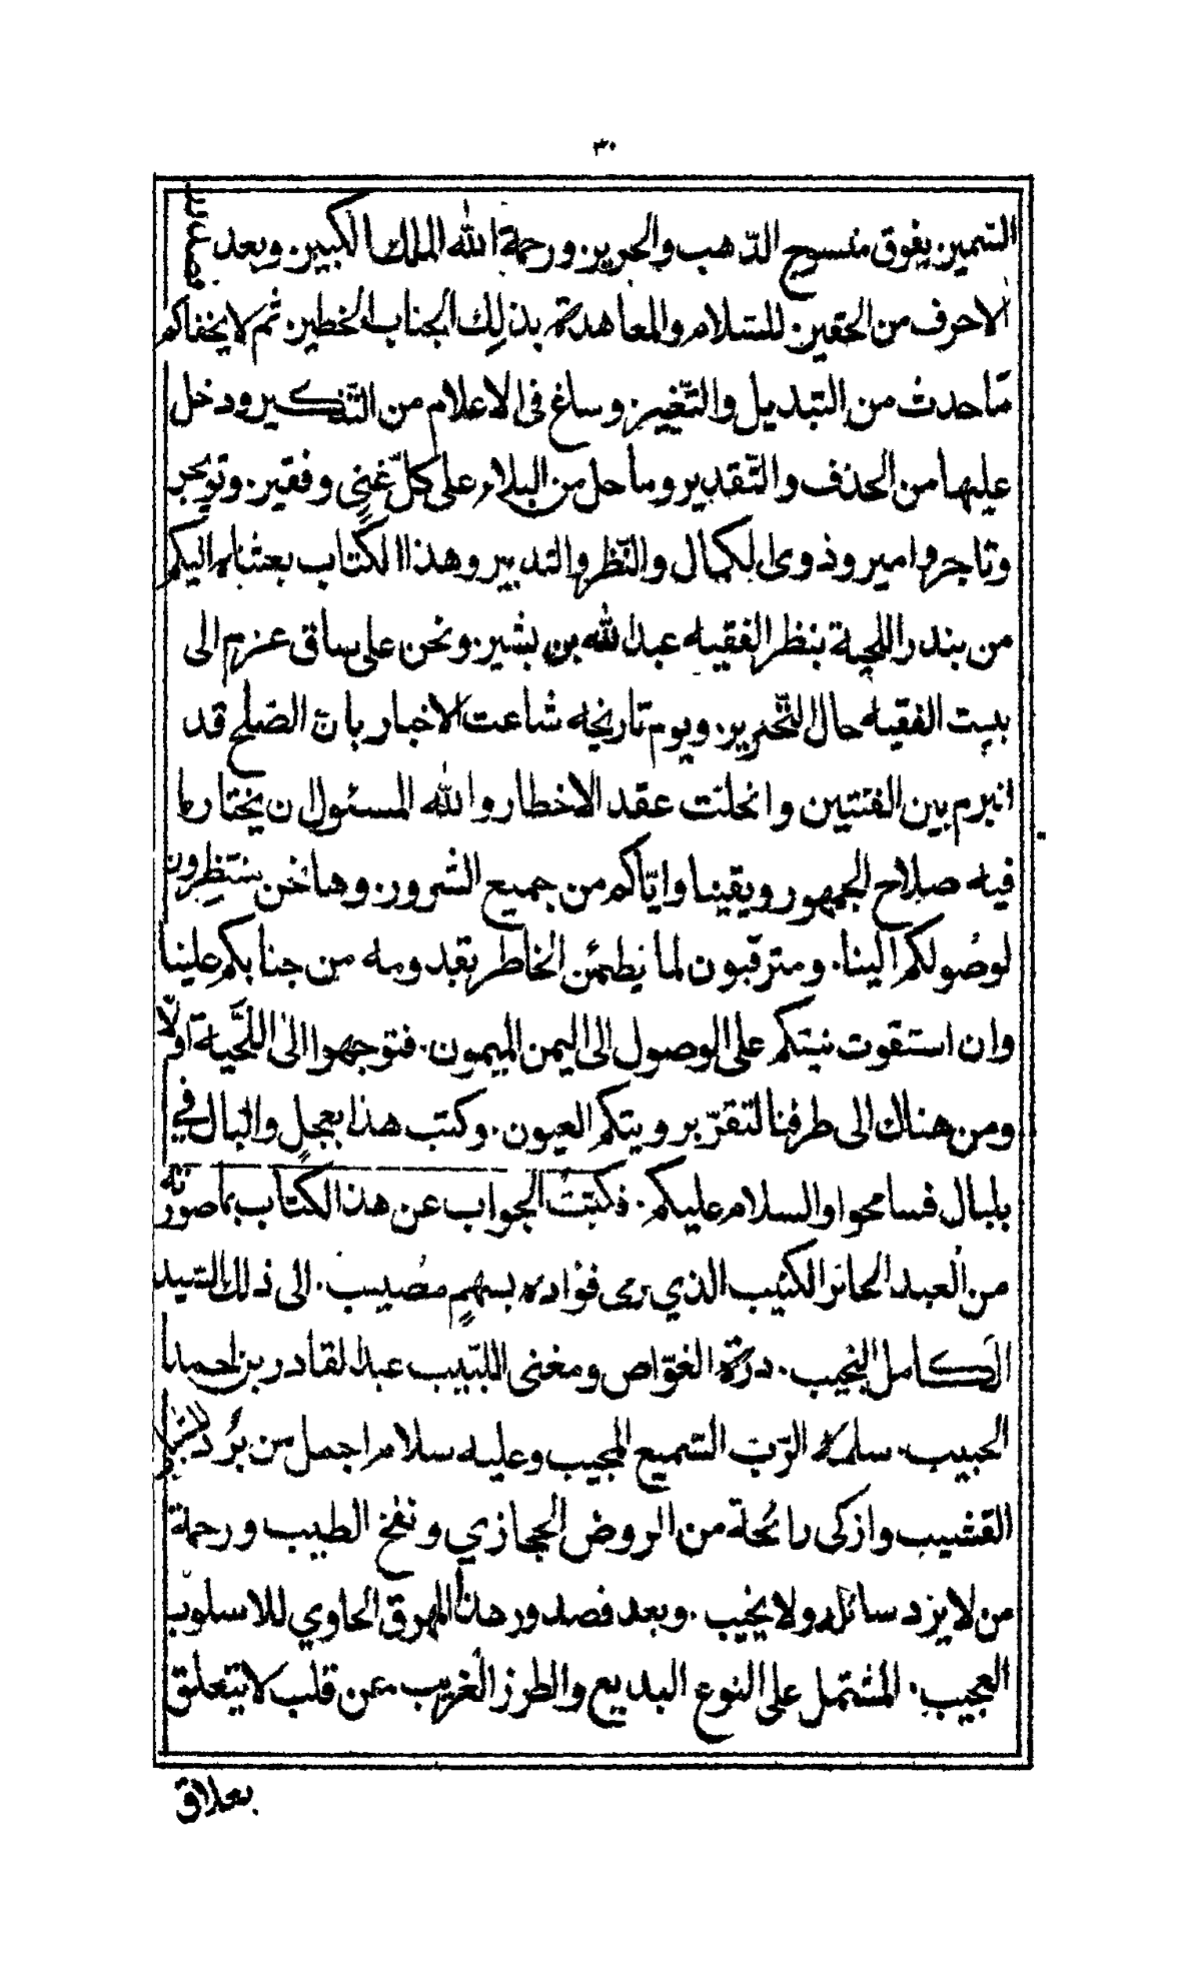 ٣٠
السّمين يفوق منسوج الذّهب والحرير. ورحمة الله الملك الكبير. وبعد
الاحرف من الحقير. للسّلام والمعاهدة بذلك الجناب الخطير. ثم لا يخفاكم
مّا حدث من التبديل والتّغيير. وساغ فى الاعلام من التّنكير ودخل
عليها من الحذف والتّقدير وما حل من البلاء على كلّ غنىٍ وفقير. وتويجر
وتاجر وامير وذوى الكمال والنّظر والتدبير وهذا الكتاب بعثناه اليكم
من بندر اللحية بنظر الفقيه عبد الله بن بشير. ونحن على ساق عزم الى
بيت الفقيه حال التّحرير. ويوم تاريخه شاعت الاخبار بانّ الصّلح قد
انبرم بين الفئتين وانحلت عقد الاخطار والله المسئول ان يختار ما
فيه صلاح الجمهور ويقينا وايّاكم من جميع الشّرور. وها نحن منتظرون
لوصولكم الينا. ومترقبون لما يطمئن الخاطر بقدومه من جنابكم علينا
وان استقوت نيتكم على الوصول الى اليمن الميمون. فتوجهوا الى اللُّحَيّة اوّلًا
ومن هناك الى طرفنا لتقرّ برويتكم العيون. وكتب هذا بعجلٍ والبال في
بلبال فسامحوا والسلام عليكم. فكتبتُ الجواب عن هذا الكتاب بما صورته
من العبد الحائر الكئيب الذي رمى فؤاده بسهمٍ مصيب. الى ذلك السّيد
الكامل النجيب. درّة الغوّاص ومغنى اللبّيب عبد القادر بن احمد
الحبيب. سلمه الرّب السّميع المجيب وعليه سلام اجمل من بُرد
القشيب وازكى رائحة من الروض الحجازي ونفخ الطيب ورحمة
من لا يزد سائله ولا يخيب. وبعد فصدور هذا المهرق الحاوي للاسلوب
العجيب. المشتمل على النوع البديع والطرز الغريب ممن قلب لا يتعلق
بعلاق